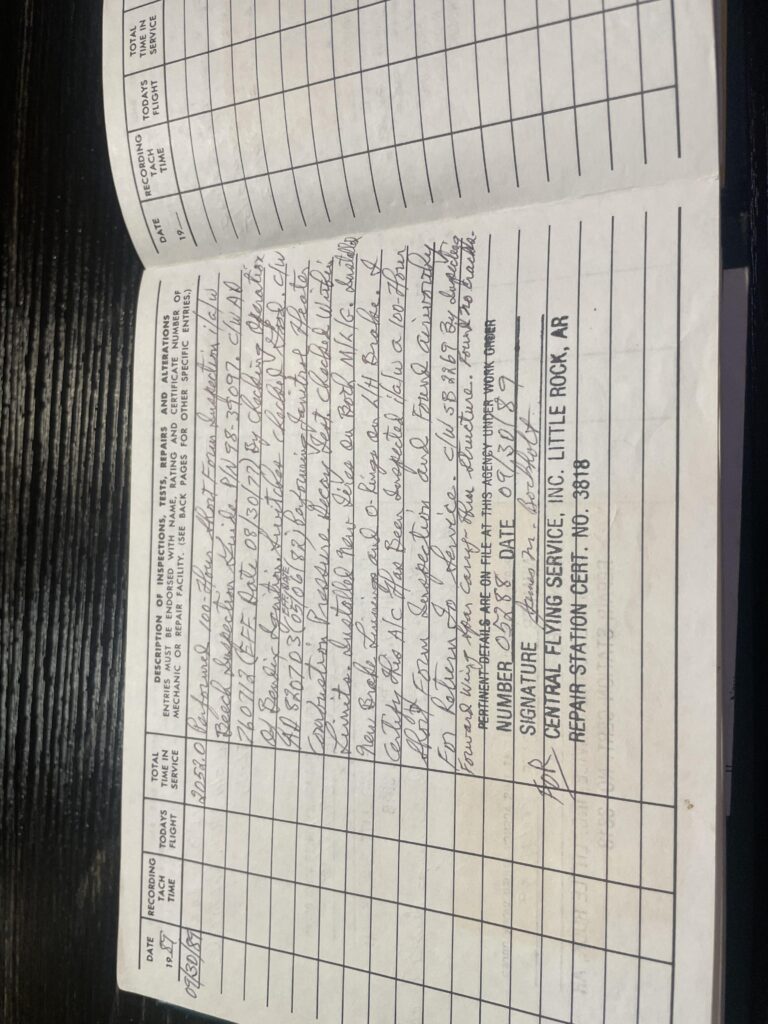 DATE
19 89
RECORDING TACH TIME
TODAYS FLIGHT
TOTAL TIME IN SERVICE
DESCRIPTION OF INSPECTIONS, TESTS, REPAIRS AND ALTERATIONS
ENTRIES MUST BE ENDORSED WITH NAME, RATING AND CERTIFICATE NUMBER OF
MECHANIC OR REPAIR FACILITY. (SEE BACK PAGES FOR OTHER SPECIFIC ENTRIES.)
09/30/89 2052.0 Performed 100-Hour Short Form Inspection i/a/w
Beech Inspection Guide P/N 98-35097. C/W AD
760712 (EFF Date 08/30/77) By Checking Operation
Of Bendix Ignition Switches Checked Good. C/W
AD 820703 (EFF DATE 05/06/82) Performing Janitrol Heater
Combustion Pressure Decay Test. Checked Within
Limits. Installed New Tires on Both M/L/G. Installed
New Brake Linings and O-Rings on L/H Brake. I
Certify this A/C Has Been Inspected i/a/w a 100-Hour
Short Form Inspection and Found airworthy
For Return To Service. C/W SB 2269 By Inspecting
Forward Wing Spar Carry-Thru Structure. Found no Cracks.
PERTINENT DETAILS ARE ON FILE AT THIS AGENCY UNDER WORK ORDER
NUMBER 05288 DATE 09/30/89
SIGNATURE James M.
FOR CENTRAL FLYING SERVICE, INC. LITTLE ROCK, AR
REPAIR STATION CERT. NO. 3818
DATE
19
RECORDING TACH TIME
TODAYS FLIGHT
TOTAL TIME IN SERVICE